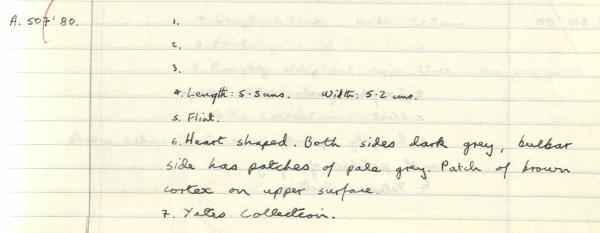 A. 507'80. 1.
2.
3.
4. Length: 5.5cms. Width: 5.2 cms.
5. Flint.
6. Heart shaped. Both sides dark grey, bulbar
side has patches of pale grey. Patch of brown
cortex on upper surface.
7. Yates Collection.